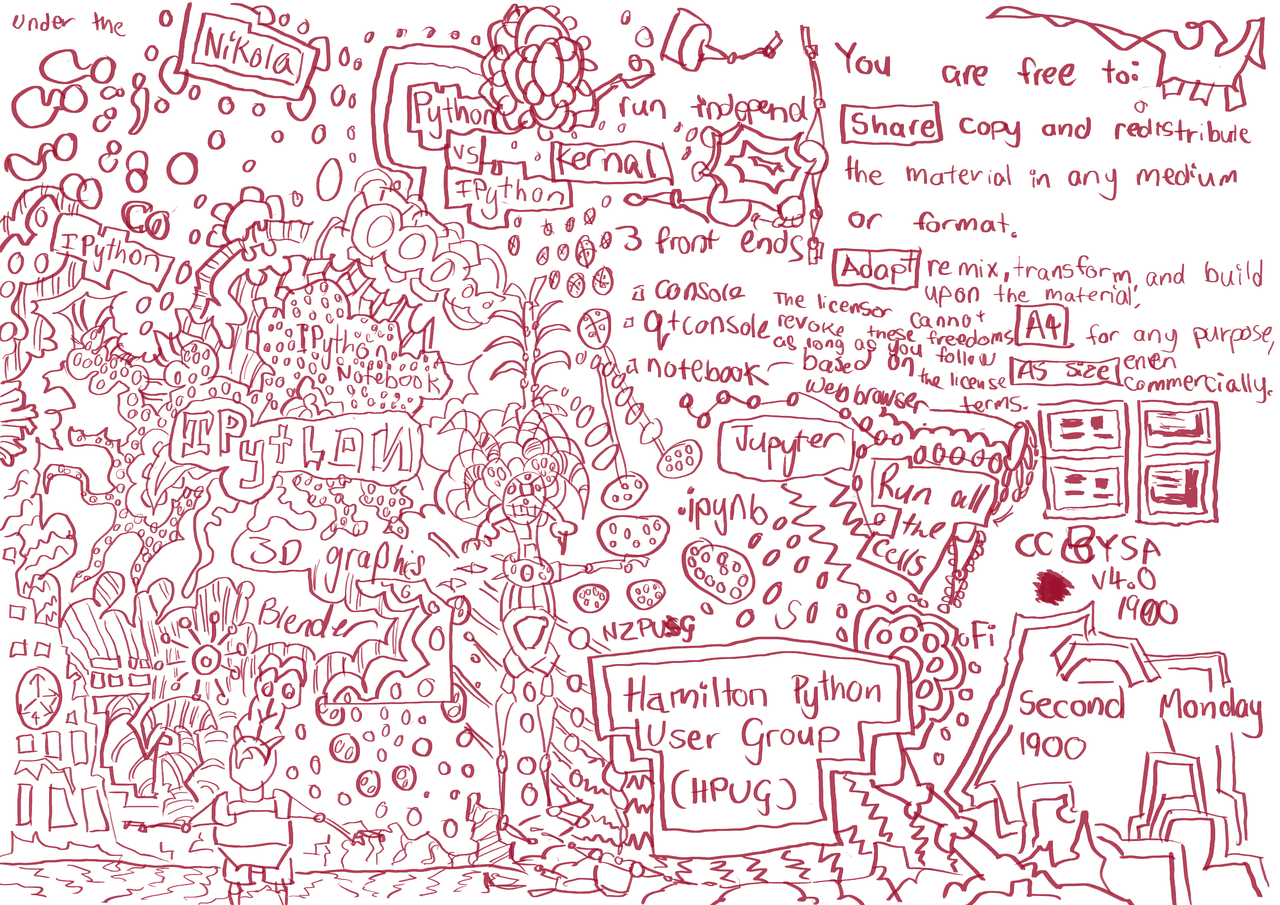 under the
Nikola
Python
vs
IPython
Kernal
run independ
3 front ends
console
qtconsole
notebook - based on
webbrowser
You are free to:
Share copy and redistribute
the material in any medium
or format.
Adapt remix, transform, and build
upon the material,
for any purpose,
even
commercially.
The licensor cannot
revoke these freedoms
as long as you follow
the license
terms.
A4
A5 size
IPython
IPython
Notebook
IPython
3D graphics
Blender
Jupyter
.ipynb
Run all
the
Cells
CC BYSA
v4.0
1900
NZPUG
Hamilton Python
User Group
(HPUG)
Fi
Second Monday
1900